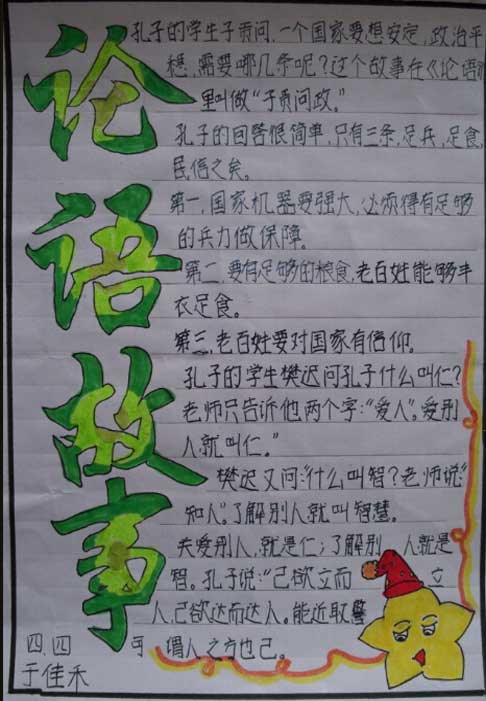 论语故事
孔子的学生子贡问,一个国家要想安定,政治平
稳,需要哪几条呢?这个故事在《论语》
里叫做“子贡问政。”
孔子的回答很简单,只有三条,足兵,足食,
民信之矣。
第一,国家机器要强大,必须得有足够
的兵力做保障。
第二,要有足够的粮食,老百姓能够丰
衣足食。
第三,老百姓要对国家有信仰。
孔子的学生樊迟问孔子什么叫仁?
老师只告诉他两个字:“爱人”。爱别
人就叫仁。”
樊迟又问:“什么叫智?老师说“
知人”。了解别人就叫智慧。
关爱别人,就是仁;了解别人就是
智。孔子说:“己欲立而立
人,己欲达而达人。能近取譬
可谓人之方也己。
四.四
于佳禾